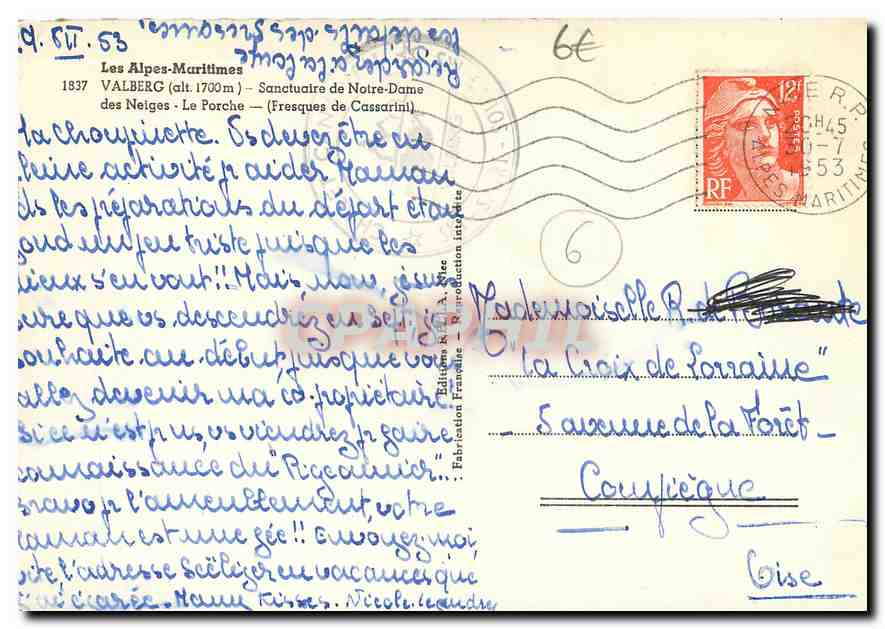 29. VII. 53
Regarder à la loupe
les détails des fresques.
Les Alpes-Maritimes
1837 VALBERG (alt. 1700m) - Sanctuaire de Notre-Dame
des Neiges - Le Porche — (Fresques de Cassarini)
6€
12F
POSTES
RF
NICE R.P.
H45
30-7
1953
ALPES MARITIMES
6
la choupinette. Vs devez être en
pleine activité pr aider Maman
ds les préparations du départ étan
un peu triste puisque les
vieux s'en vont!! Mais, nous, je suis
sûre que vs descendrez en Sept. je
souhaite au début puisque vous
allez devenir ma co-propriétaire.
Si ce n'est pr us, vs viendrez pr faire
connaissance du "Pigeonnier"...
Bravo pr l'ameublement, votre
maman est une fée!! Envoyez-moi
vite l'adresse Seeliger en vacances que
j'ai égarée. Many Kisses. Nicole
Editions Nice
Fabrication Française — Reproduction interdite
CPAPHIL
Mademoiselle B. de
"La Croix de Lorraine"
5 avenue de la Forêt
Compiègne
Oise